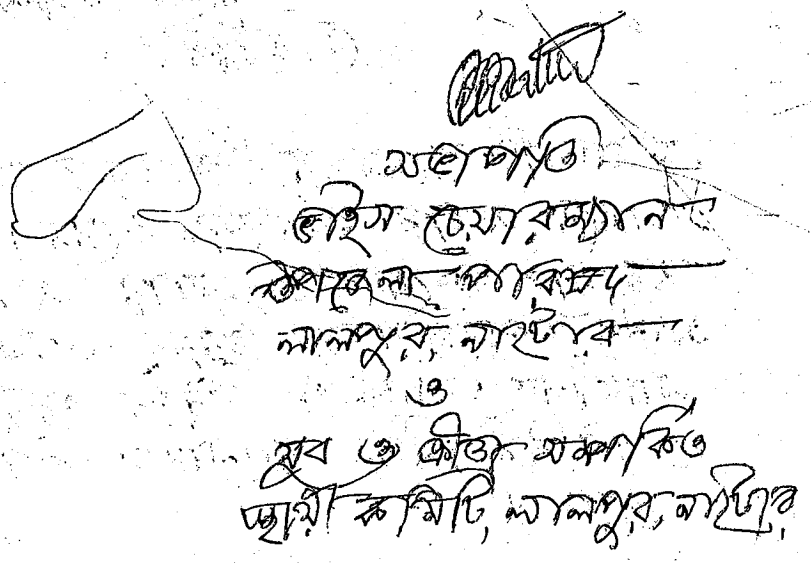 সভাপতি
ভাইস চেয়ারম্যান
উপজেলা পরিষদ
লালপুর, নাটোর
ও
যুব ও ক্রীড়া সম্পর্কিত
স্থায়ী কমিটি, লালপুর, নাটোর